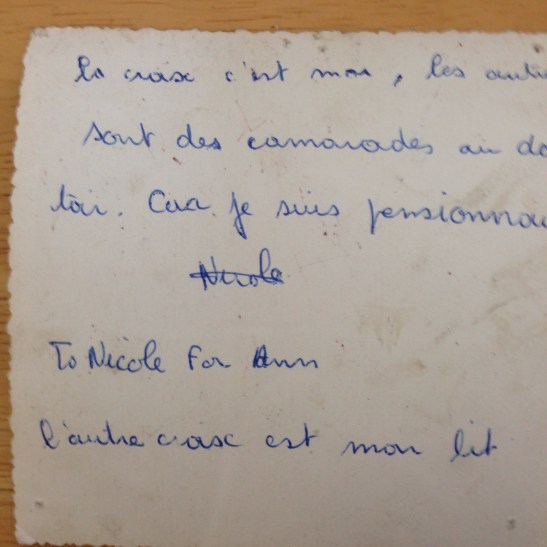 la croix c'est moi, les autre
sont des camarades au do
toir. Car je suis pensionnai
Nicole
To Nicole For Ann
l'autre croix est mon lit